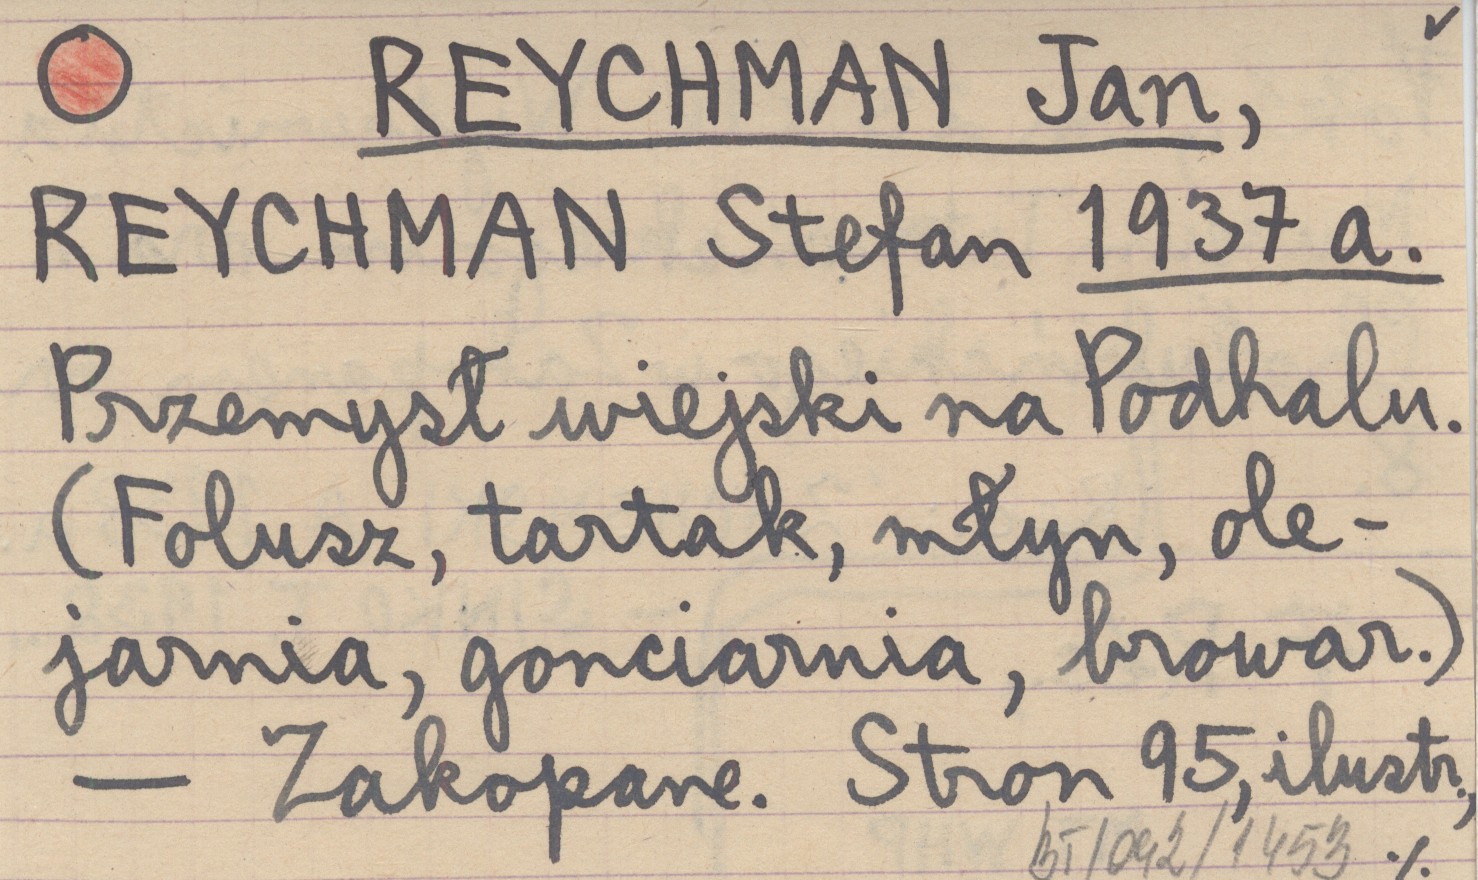 REYCHMAN Jan,
REYCHMAN Stefan 1937 a.
Przemysł wiejski na Podhalu.
(Folusz, tartak, młyn, ole-
jarnia, gonciarnia, browar.)
— Zakopane. Stron 95, ilustr.,
BT/092/1453 ./.